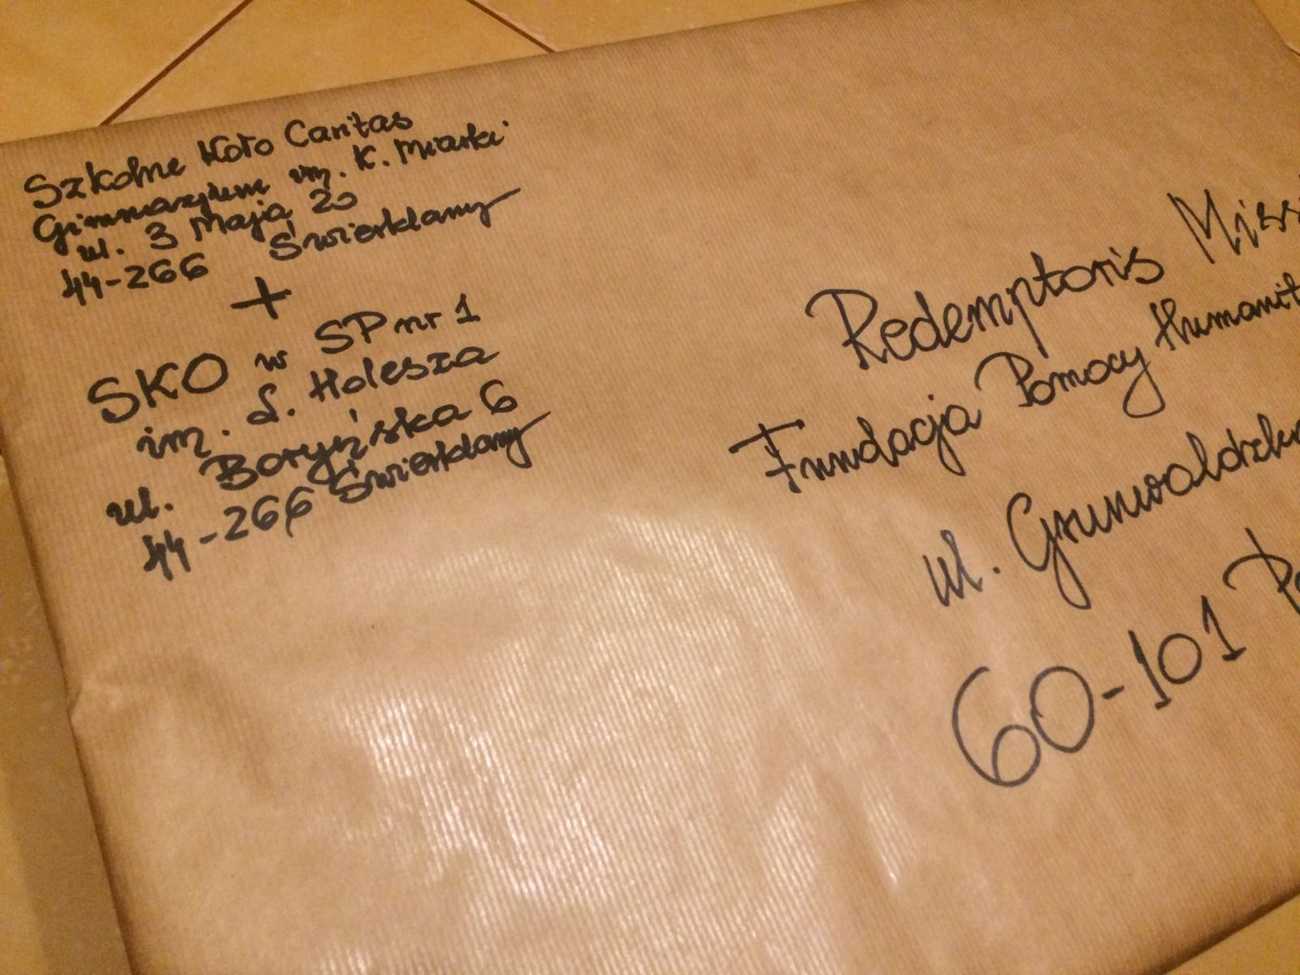 Szkolne Koło Caritas
Gimnazjum im. K. Miarki
ul. 3 Maja 20
44-266 Świerklany
+
SKO w SP nr 1
im. L. Holesza
ul. Boryńska 6
44-266 Świerklany
Redemptoris Missi
Fundacja Pomocy Humanit
ul. Grunwaldzka
60-101 Po